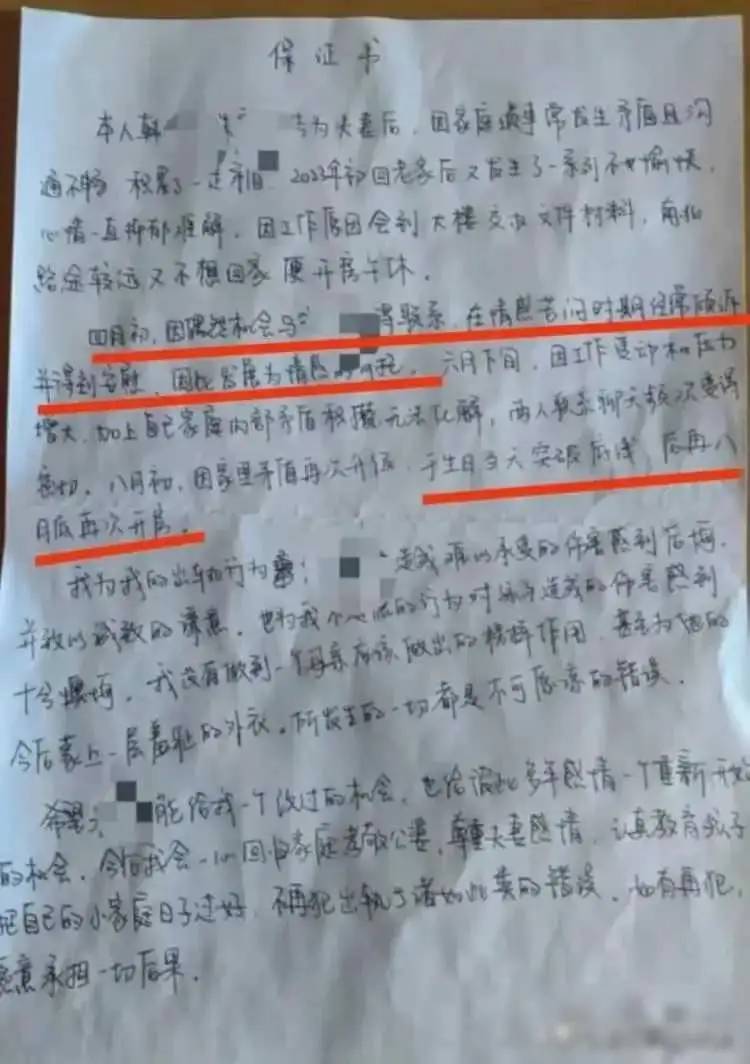 保证书
本人韩 与 结为夫妻后，因家庭琐事常发生矛盾且沟
通不畅 积累了一定 2023年初回老家后又发生了一系列不愉快，
心情一直抑郁难解，因工作原因会到大楼交送文件材料，
路途较远又不想回家 便开房午休．
四月初，因偶然机会与 得联系，在情感苦闷时期经常倾诉
并得到安慰，因此发展为情感的 六月下旬，因工作变动和压力
增大，加上自己家庭内部矛盾积攒无法化解，两人联系聊天频次变得
密切，八月初，因家里矛盾再次升级，于生日当天突破底线 后再八
月底再次开房．
我为我的出轨行为 造成难以承受的伤害感到后悔，
并致以诚挚的 ，也为我 的行为对孩子造成的伤害感到
十分懊悔，我没有做到一个母亲应该做出的榜样作用，甚至为他的
今后蒙上一层羞耻的外衣，所发生的一切都是不可原谅的错误．
希望 能给我一个改过的机会，也给彼此多年感情一个重新开始
的机会，今后我会一心回归家庭孝敬公婆，尊重夫妻感情，认真教育孩子
把自己的小家庭日子过好，不再犯出轨 诸如此类的错误，如有再犯，
愿意承担一切后果．